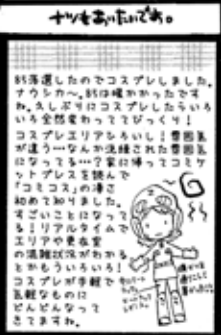 ナツもあいたいです。
85落選したのでコスプレしました。
ナウシカ〜。85は暖かかったです
ね。久しぶりにコスプレしたらいろ
いろ全然変わっててびっくり！
コスプレエリアひろいし！雰囲気
が違う…なんか洗練された雰囲気
になってる…？家に帰ってコミケ
ットプレスを読んで
「コミコス」の凄さ
初めて知りました。
すごいことになって
る！リアルタイムで
エリアや更衣室
の混雑状況がわかる
とかもういろいろ！
コスプレが手軽で
気軽なものに
どんどんなって
きてますね。